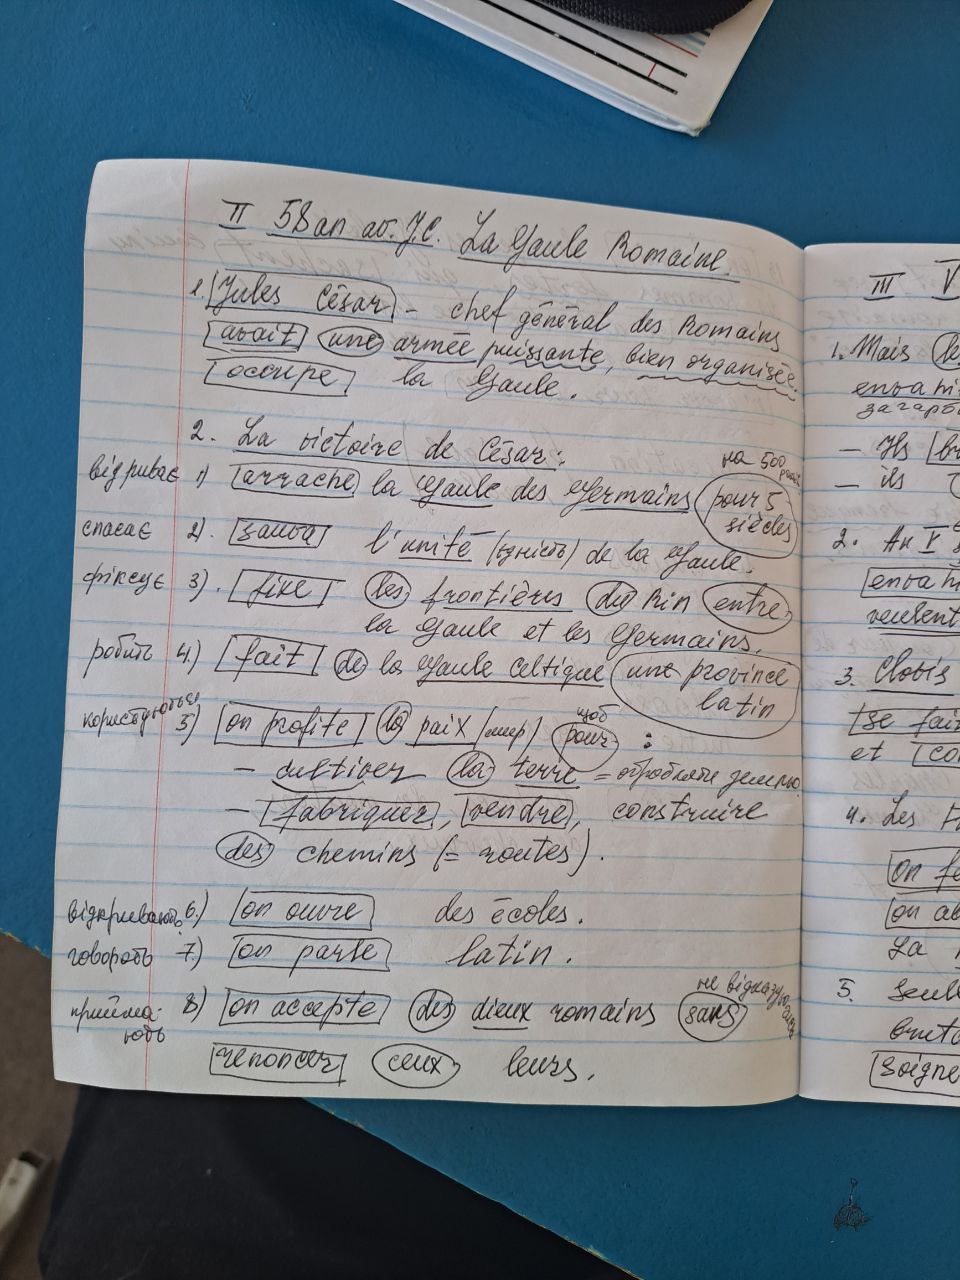 II 58 an av. J.C. La Gaule Romaine.
1. Jules César - chef général des Romains
avait une armée puissante, bien organisée.
occupe la Gaule.
2. La victoire de César:
на 500 років
відриває 1) arrache la Gaule des Germains pour 5
siècles
спасає 2). sauva l'unité (єдність) de la Gaule.
фіксує 3). fixe les frontières du Rin entre
la Gaule et les Germains.
робить 4.) fait de la Gaule Celtique une province
latin
користуються 5) on profite la paix (мир) pour :
щоб
- cultiver la terre = обробляти землю
- fabriquer, vendre, construire
des chemins (= routes).
відкривають 6.) on ouvre des écoles.
говорять 7.) on parle latin.
прийма- 8) on accepte des dieux romains sans
ють
не відказуючись
renoncer ceux leurs.
III V
1. Mais
enva
загарб
- Ils
- ils
2. Au V
enva
veulent
3. Clovis
se fait
et
4. Les F
on
on
La
5. Seul
soigne